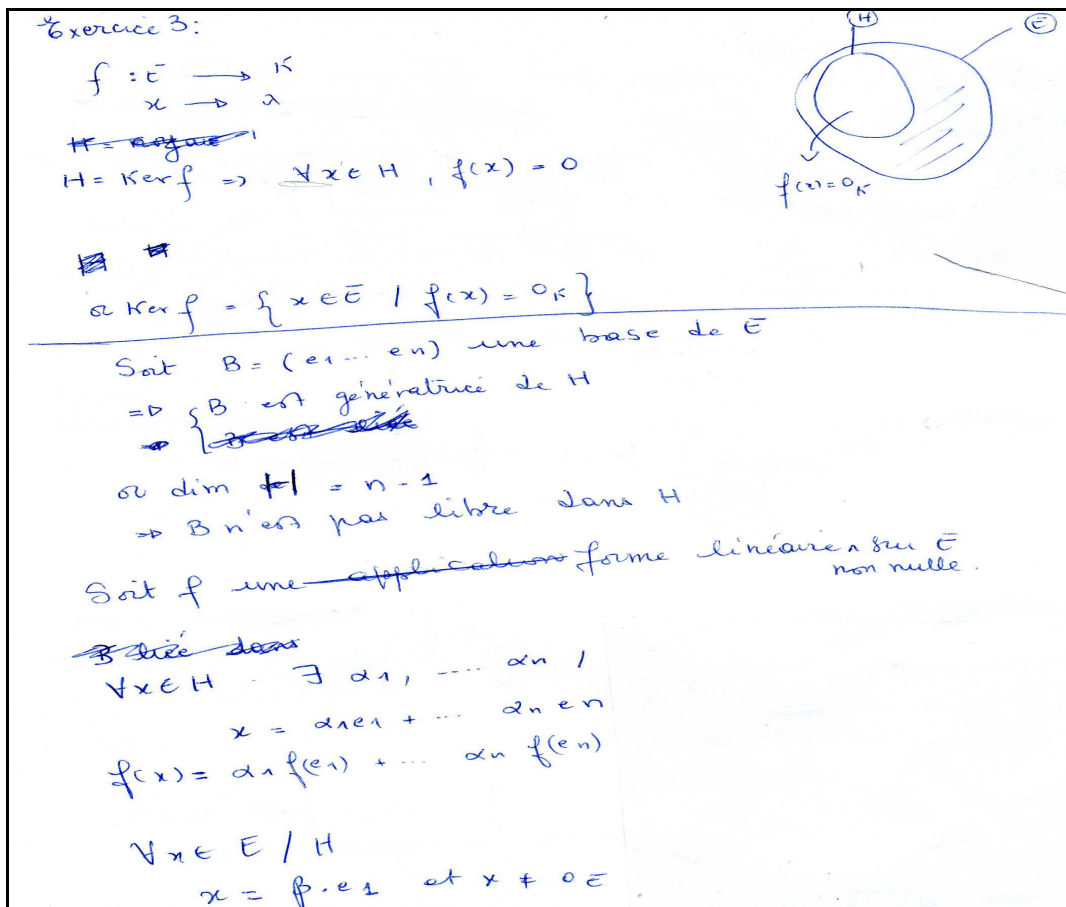 Exercice 3:
f : E → K
x → λ
H = Ker f => ∀x ∈ H, f(x) = 0
or Ker f = { x ∈ E / f(x) = 0K }
H
E
f(x) = 0K
Soit B = (e1 ... en) une base de E
=> { B est génératrice de H
or dim H = n - 1
=> B n'est pas libre dans H
Soit f une application forme linéaire ∧ sur E
non nulle.
B liée dans
∀x ∈ H ∃ α1, .... αn /
x = α1e1 + ... αn en
f(x) = α1 f(e1) + ... αn f(en)
∀x ∈ E / H
x = β.e1 et x ≠ 0E